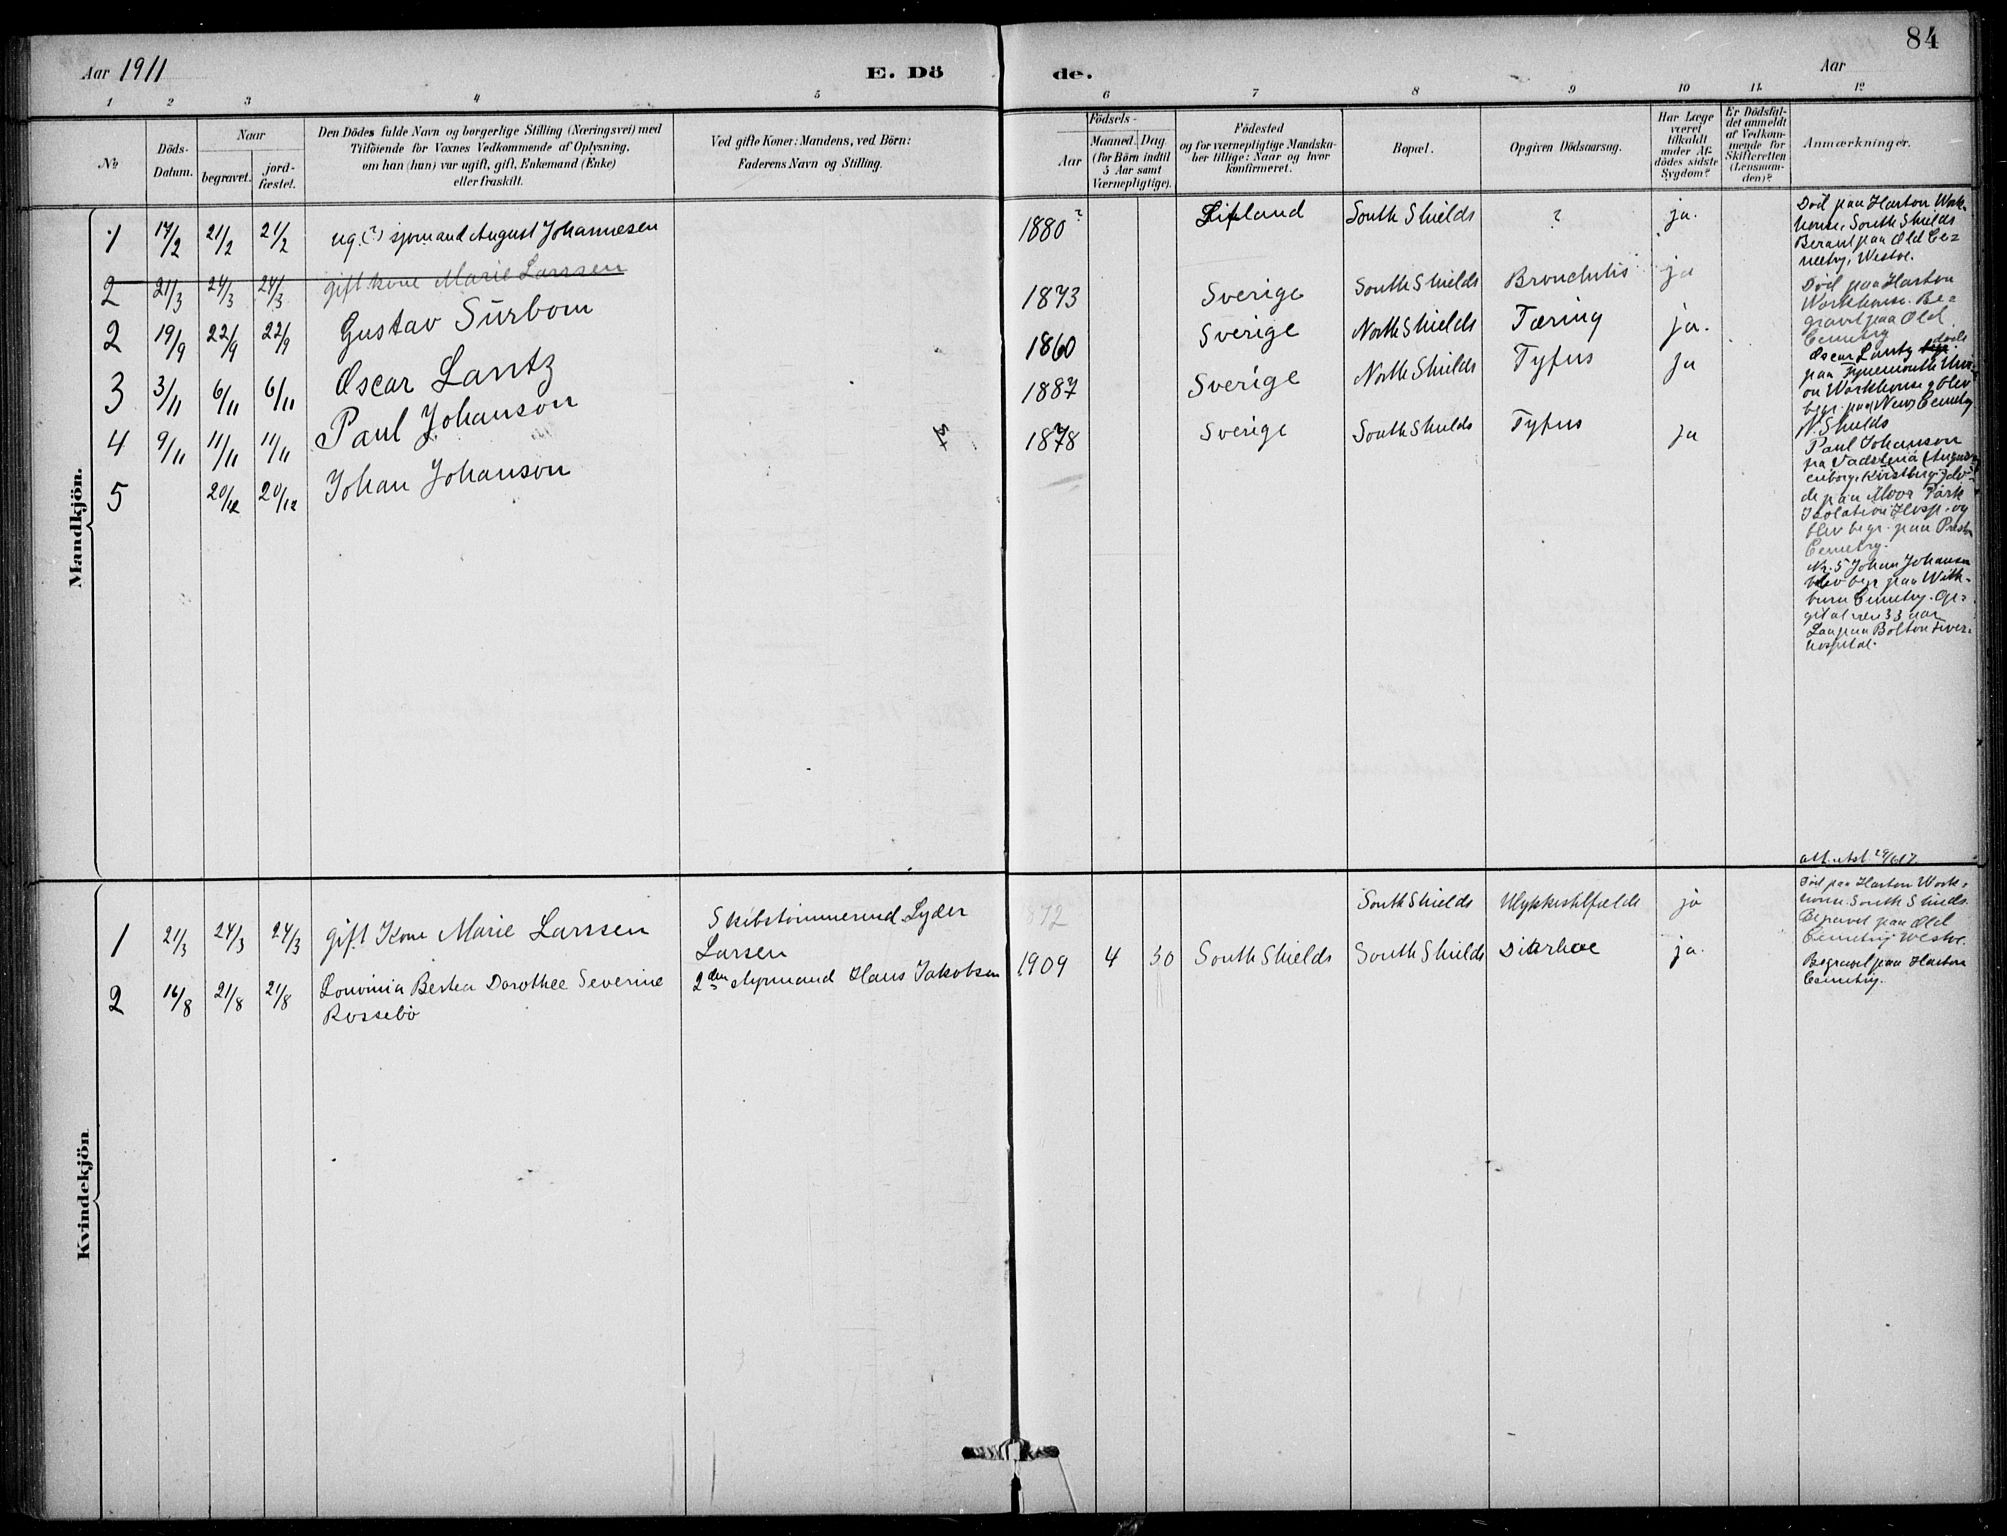 84
Aar 1911 E. Dö de. Aar
1 2 3 4 5 6 7 8 9 10 11 12
No
Döds-Datum.
Naar
begravet. jord-fæstet.
Den Dödes fulde Navn og borgerlige Stilling (Næringsvei) med
Tilföiende for Voxnes Vedkommende af Oplysning,
om han (hun) var ugift, gift, Enkemand (Enke)
eller fraskilt.
Ved gifte Koner: Mandens, ved Börn:
Faderens Navn og Stilling.
Födsels-
Aar
Maaned. Dag
(for Börn indtil
5 Aar samt
Værnepligtige).
Födested
og for værnepligtige Mandska-
ber tillige: Naar og hvor
konfirmeret.
Bopæl.
Opgiven Dödsaarsag.
Har Læge
været
tilkaldt
under Af-
dödes sidste
Sygdom?
Er Dödsfal-
det anmeldt
af Vedkom-
mende for
Skifteretten
(Lensman-
den)?
Anmærkninger.
Mandkjön.
1 17/2 21/2 21/2 ug. (?) sjømand August Johannesen 1880? Lifland South Shields ? ja.
Död paa Harton Work-
house, South Shields
paa Old Ce-
metry, Westoe.
2 21/3 24/3 24/3 gift kone Marie Larssen 1873 Sverige South Shields Bronchitis ja
Död paa Harton
Workhouse. Be-
gravet paa Old
Cemetry
2 19/9 22/9 22/9 Gustav Sürbom 1860 Sverige North Shields Tæring ja.
3 3/11 6/11 6/11 Oscar Lantz 1887 Sverige North Shields Tyfus ja
Oscar Lantz døde
paa Tynemouth Uni-
on Workhouse & blev
begr. paa (New) Cemetry
N. Shields
4 9/11 11/11 11/11 Paul Johanson 1878 Sverige South Shields Tyfus ja
Paul Johanson
fra Vadstena
de paa Moor Park
Isolation Hosp. og
blev begr. paa Preston
Cemetry.
5 20/12 20/12 Johan Johanson
Nr. 5 Johan Johanson
blev begr paa Whit-
burn Cemetry. Op-
git at være 33 aar
Laa paa Bolton Fever-
hospital.
att. utst. 29/6 17.
Kvindekjön
1 21/3 24/3 24/3 gift Kone Marie Larssen
Skibstömmermd. Lyder
Larsen
1872 South Shields Ulykkestilfælde ja
Död paa Harton Work-
house. South Shields.
Begravet paa Old
Cemetrij Westoe.
2 16/8 21/8 21/8 Louvinia Bertea Dorothee Severine
Rossebö
2den styrmand Hans Jakobsen
1909 4 30 South Shields South Shields Diarhoe ja.
Begravet paa Harton
Cemetry.